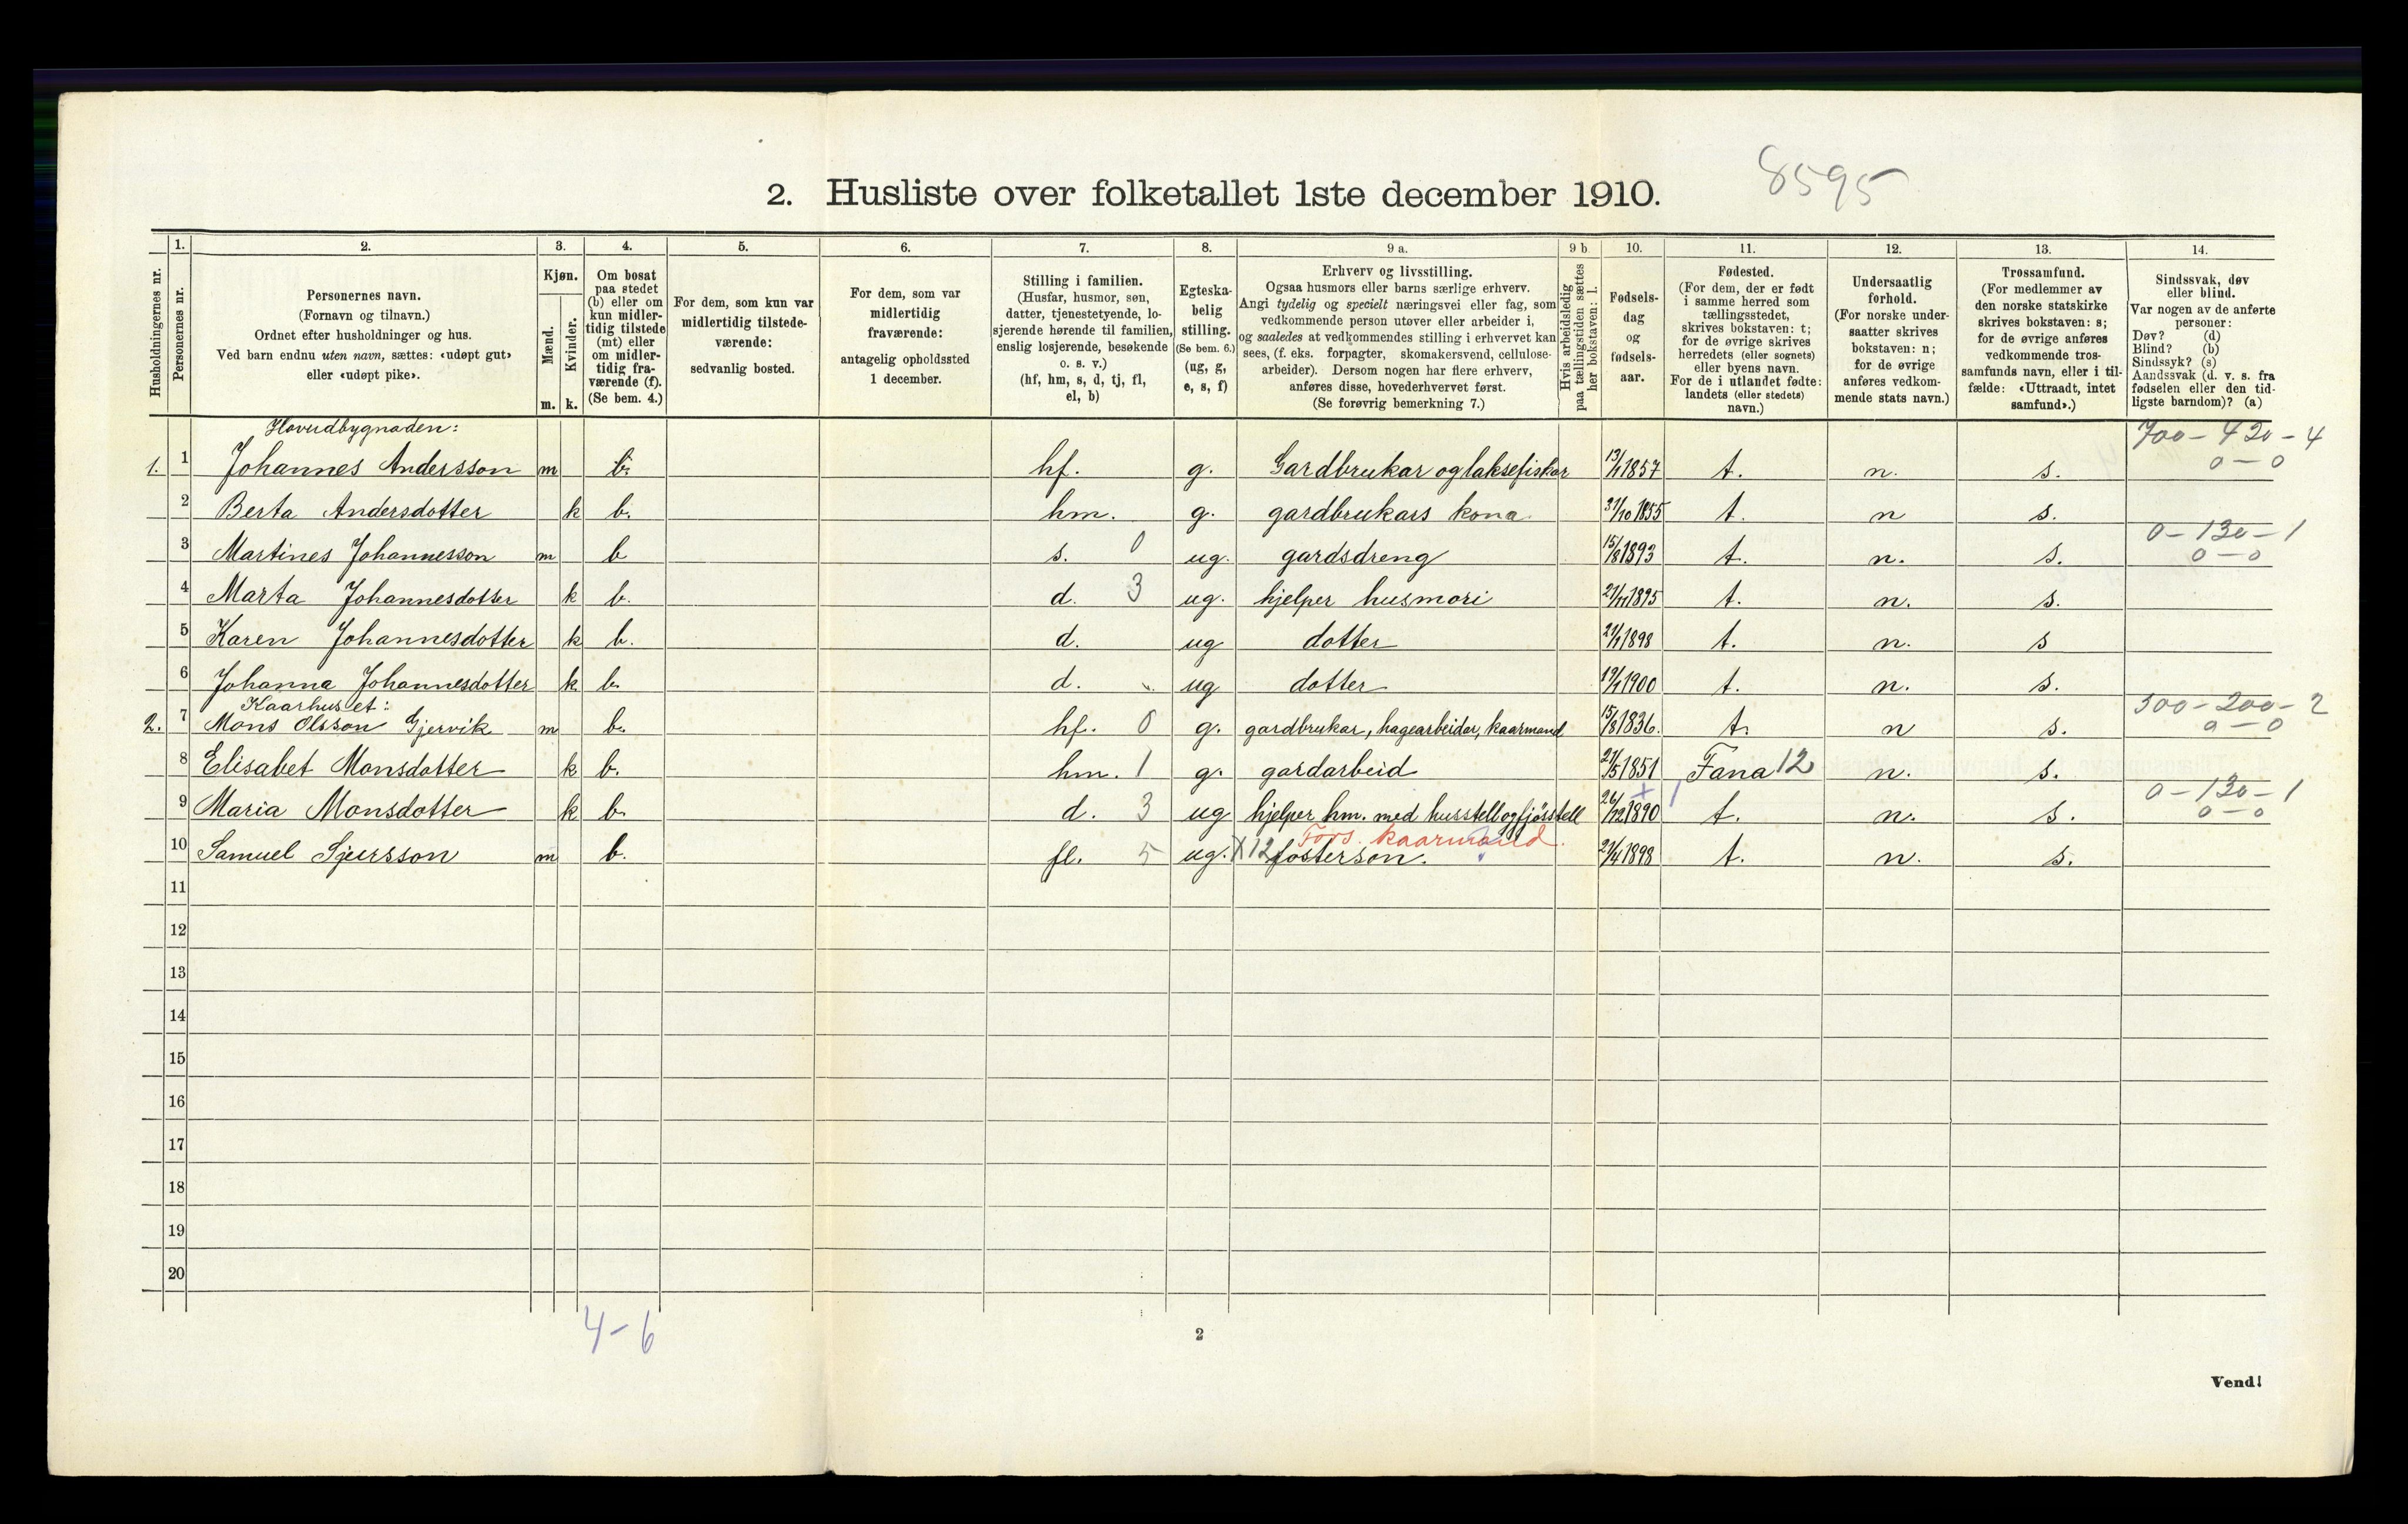 8595
2. Husliste over folketallet 1ste december 1910.
Husholdningernes nr.
1.
Personernes nr.
2.
Personernes navn.
(Fornavn og tilnavn.)
Ordnet efter husholdninger og hus.
Ved barn endnu uten navn, sættes: «udøpt gut»
eller «udøpt pike».
3.
Kjøn.
Mænd.
Kvinder.
m. k.
4.
Om bosat
paa stedet
(b) eller om
kun midler-
tidig tilstede
(mt) eller
om midler-
tidig fra-
værende (f).
(Se bem. 4.)
5.
For dem, som kun var
midlertidig tilstede-
værende:
sedvanlig bosted.
6.
For dem, som var
midlertidig
fraværende:
antagelig opholdssted
1 december.
7.
Stilling i familien.
(Husfar, husmor, søn,
datter, tjenestetyende, lo-
sjerende hørende til familien,
enslig losjerende, besøkende
o. s. v.)
(hf, hm, s, d, tj, fl,
el, b)
8.
Egteska-
belig
stilling.
(Se bem. 6.)
(ug, g,
e, s, f)
9 a.
Erhverv og livsstilling.
Ogsaa husmors eller barns særlige erhverv.
Angi tydelig og specielt næringsvei eller fag, som
vedkommende person utøver eller arbeider i,
og saaledes at vedkommendes stilling i erhvervet kan
sees, (f. eks. forpagter, skomakersvend, cellulose-
arbeider). Dersom nogen har flere erhverv,
anføres disse, hovederhvervet først.
(Se forøvrig bemerkning 7.)
9 b
Hvis arbeidsledig
paa tællingstiden sættes
her bokstaven: l.
10.
Fødsels-
dag
og
fødsels-
aar.
11.
Fødested.
(For dem, der er født
i samme herred som
tællingsstedet,
skrives bokstaven: t;
for de øvrige skrives
herredets (eller sognets)
eller byens navn.
For de i utlandet fødte:
landets (eller stedets)
navn.)
12.
Undersaatlig
forhold.
(For norske under-
saatter skrives
bokstaven: n;
for de øvrige
anføres vedkom-
mende stats navn.)
13.
Trossamfund.
(For medlemmer av
den norske statskirke
skrives bokstaven: s;
for de øvrige anføres
vedkommende tros-
samfunds navn, eller i til-
fælde: «Uttraadt, intet
samfund».)
14.
Sindssvak, døv
eller blind.
Var nogen av de anførte
personer:
Døv? (d)
Blind? (b)
Sindssyk? (s)
Aandssvak (d. v. s. fra
fødselen eller den tid-
ligste barndom)? (a)
Hovudbygnaden:
700-420-4
0-0
1. 1 Johannes Andersson m b. hf. g. Gardbrukar og laksefiskar 13/1 1857 t. n. s.
2 Berta Andersdotter k b. hm. g. gardbrukars kona 31/10 1855 t. n s.
0-130-1
0-0
3 Martines Johannesson m b s. 0 ug. gardsdreng 15/8 1893 t. n. s.
4 Marta Johannesdotter k b. d. 3 ug. hjelper husmori 21/11 1895 t. n. s.
5 Karen Johannesdotter k b. d. ug dotter 21/1 1898 t. n. s
6 Johanna Johannesdotter k b. d. ug dotter 19/1 1900 t. n. s.
Kaarhuset:
300-200-2
0-0
2. 7 Mons Olsson Gjervik m b. hf. 0 g. gardbrukar, hagearbeidar, kaarmand 15/8 1836. t. n s.
8 Elisabet Monsdotter k b. hm. 1 g. gardarbeid 21/5 1851 Fana 12 n. s.
0-130-1
0-0
9 Maria Monsdotter k b. d. 3 ug hjelper hm. med husstell og fjösstell 26/12 1890 t. n. s.
Fors. kaarmand.
10 Samuel Sjursson m b. fl. 5 ug. X12 fosterson. 21/4 1898 t. n. s.
11
12
13
14
15
16
17
18
19
20
4-6
2
Vend!